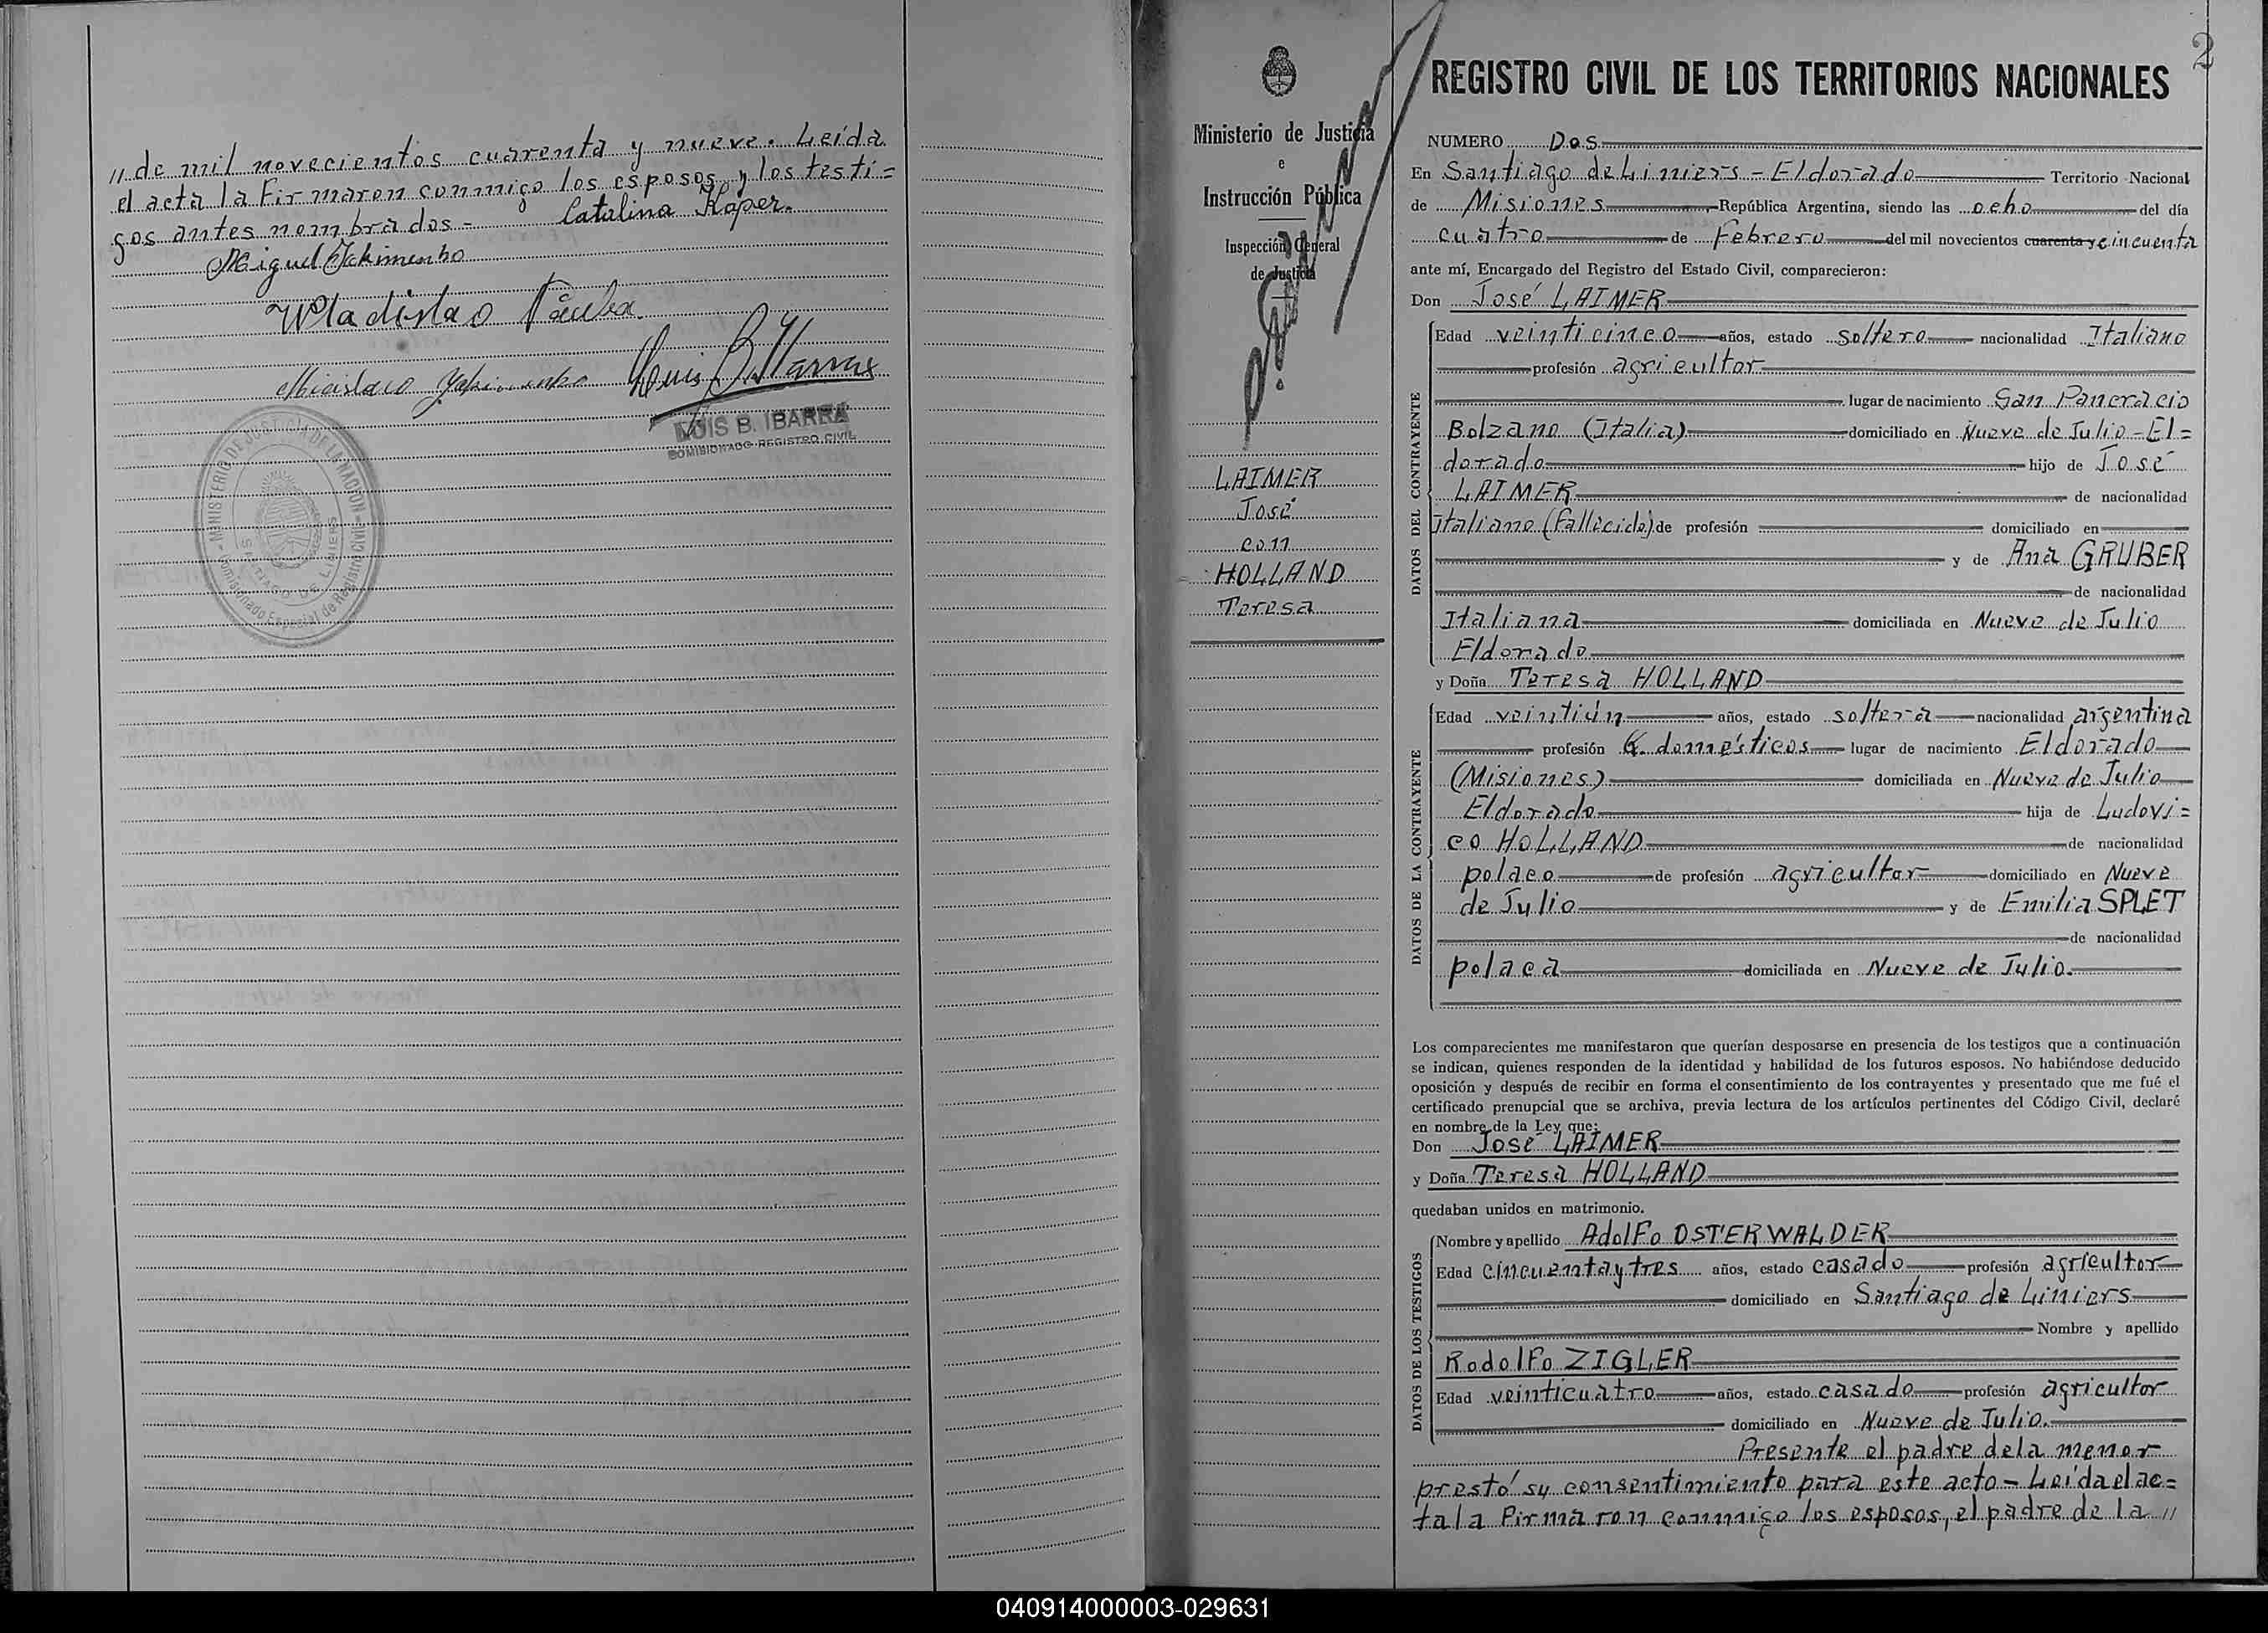 〃 de mil novecientos cuarenta y nueve. Leída
el acta la Firmaron conmigo los esposos y los testi=
gos antes nombrados - Catalina Koper.
Miguel Jakimenko
Wladislao

LUIS B. IBARRA
COMISIONADO REGISTRO CIVIL
MINISTERIO DE JUSTICIA DE LA NACION
SANTIAGO DE LINIERS
Comisionado Especial de Registro Civil
Ministerio de Justicia
e
Instrucción Pública
Inspección General
de Justicia
LAIMER
José
con
HOLLAND
Teresa
2
REGISTRO CIVIL DE LOS TERRITORIOS NACIONALES
NUMERO Dos
En Santiago de Liniers - Eldorado Territorio Nacional
de Misiones República Argentina, siendo las ocho del día
cuatro de Febrero del mil novecientos cuarenta y cincuenta
ante mí, Encargado del Registro del Estado Civil, comparecieron:
Don José LAIMER
DATOS DEL CONTRAYENTE
Edad veinticinco años, estado soltero nacionalidad Italiano
profesión agricultor
lugar de nacimiento San Pancracio
Bolzano (Italia) domiciliado en Nueve de Julio - El=
dorado hijo de José
LAIMER de nacionalidad
italiano (Fallecido) de profesión domiciliado en
y de Ana GRUBER
de nacionalidad
Italiana domiciliada en Nueve de Julio
Eldorado
y Doña Teresa HOLLAND
DATOS DE LA CONTRAYENTE
Edad veintiún años, estado soltera nacionalidad argentina
profesión Q. domésticos lugar de nacimiento Eldorado
(Misiones) domiciliada en Nueve de Julio
Eldorado hija de Ludovi=
co HOLLAND de nacionalidad
polaco de profesión agricultor domiciliado en Nueve
de Julio y de Emilia SPLET
de nacionalidad
polaca domiciliada en Nueve de Julio.
Los comparecientes me manifestaron que querían desposarse en presencia de los testigos que a continuación
se indican, quienes responden de la identidad y habilidad de los futuros esposos. No habiéndose deducido
oposición y después de recibir en forma el consentimiento de los contrayentes y presentado que me fué el
certificado prenupcial que se archiva, previa lectura de los artículos pertinentes del Código Civil, declaré
en nombre de la Ley que:
Don José LAIMER
y Doña Teresa HOLLAND
quedaban unidos en matrimonio.
DATOS DE LOS TESTIGOS
Nombre y apellido Adolfo OSTERWALDER
Edad cincuenta y tres años, estado casado profesión agricultor
domiciliado en Santiago de Liniers
Nombre y apellido
Rodolfo ZIGLER
Edad veinticuatro años, estado casado profesión agricultor
domiciliado en Nueve de Julio.
Presente el padre de la menor
prestó su consentimiento para este acto - Leída el ac=
ta la Firmaron conmigo los esposos, el padre de la 〃
040914000003-029631